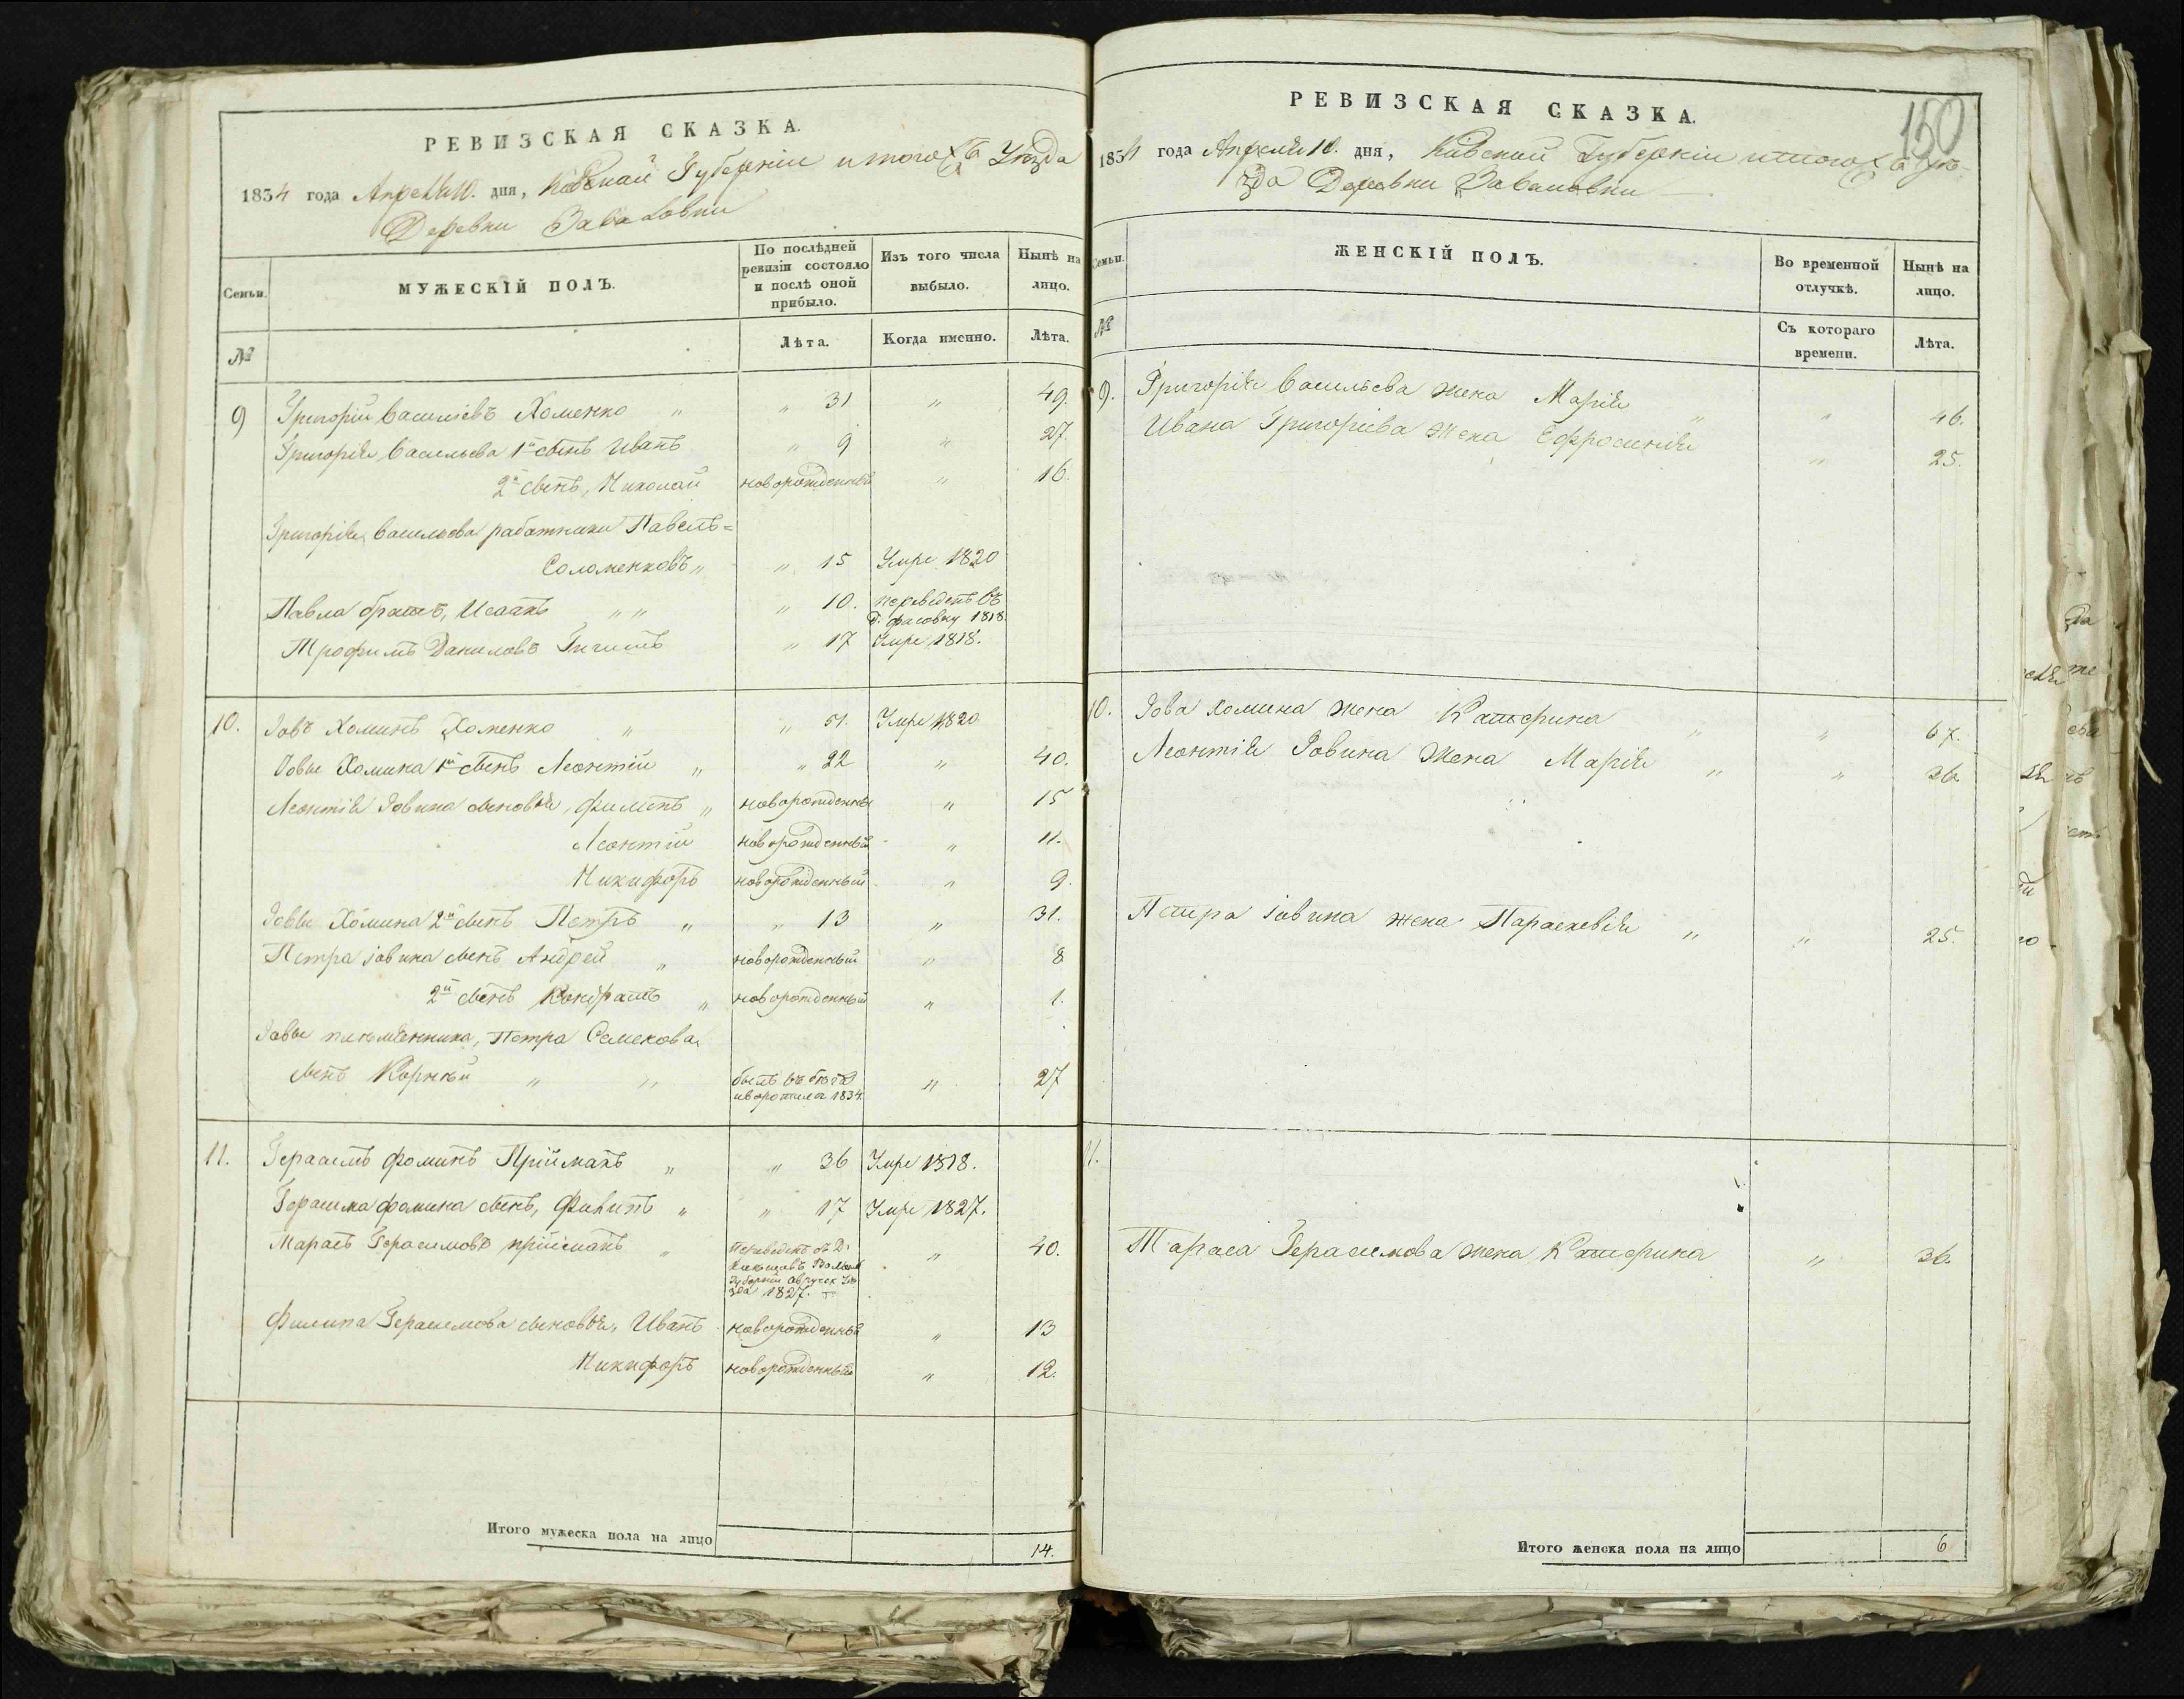 РЕВИЗСКАЯ СКАЗКА.
1834 года Апреля 10. дня, Кіевской Губерніи и того Уѣзда
Деревни Заваловки
Семьи.
МУЖЕСКІЙ ПОЛЪ.
По послѣдней ревизіи состояло и послѣ оной прибыло.
Изъ того числа выбыло.
Нынѣ на лицо.
№
Лѣта.
Когда именно.
Лѣта.
9 Григорій Васильевъ Хоменко „ „ 31 „ 49.
Григорія Васильева 1й сынъ Иванъ „ 9 „ 27.
2й сынъ, Николай новорожденный „ 16.
Григорія Васильева работники Павелъ=
Соломенковъ „ „ 15 Умре 1820
Павла братъ, Исаакъ „ „ „ 10. переведенъ въ
1818.
Трофимъ Даниловъ „ 17 Умре 1818.
10. Іовъ Хоминъ Хоменко „ „ 51. Умре 1820
Іовы Хомина 1й сынъ Леонтій „ „ 22 „ 40.
Леонтія Іовина сыновья, Филипъ „ новорожденный „ 15
Леонтій новорожденный „ 11.
Никифоръ новорожденный „ 9.
Іовы Хомина 2й сынъ Петръ „ „ 13 „ 31.
Петра Іовина сынъ Андрей „ новорожденный „ 8
2й сынъ Кондратъ „ новорожденный „ 1.
Іовы племянника, Петра Семенова
сынъ Корнѣй „ „ былъ въ бѣгахъ „ 27
1834.
11. Герасимъ Фоминъ Пріймакъ „ „ 36 Умре 1818.
Герасима Фомина сынъ, Филипъ „ „ 17 Умре 1827.
Тарасъ Герасимовъ пріймакъ „ переведенъ Д. „ 40.
Волын
Губерніи Овручск Уѣ
зда 1827.
Филипа Герасимова сыновья, Иванъ новорожденный „ 13
Никифоръ новорожденный „ 12.
Итого мужеска пола на лицо 14.
150
РЕВИЗСКАЯ СКАЗКА.
1834 года Апреля 10. дня, Кіевской Губерніи и того Уѣ-
зда Деревни Заваловки
Семьи.
ЖЕНСКІЙ ПОЛЪ.
Во временной отлучкѣ.
Нынѣ на лицо.
№
Съ котораго времени.
Лѣта.
9. Григорія Васильева жена Марія „ „ 46.
Ивана Григоріева жена Ефросинія „ 25.
10. Іова Хомина жена Катерина „ „ 67.
Леонтія Іовина жена Марія „ „ 36.
Петра Іовина жена Параскевія „ „ 25.
11.
Тараса Герасимова жена Катерина „ 36.
Итого женска пола на лицо 6